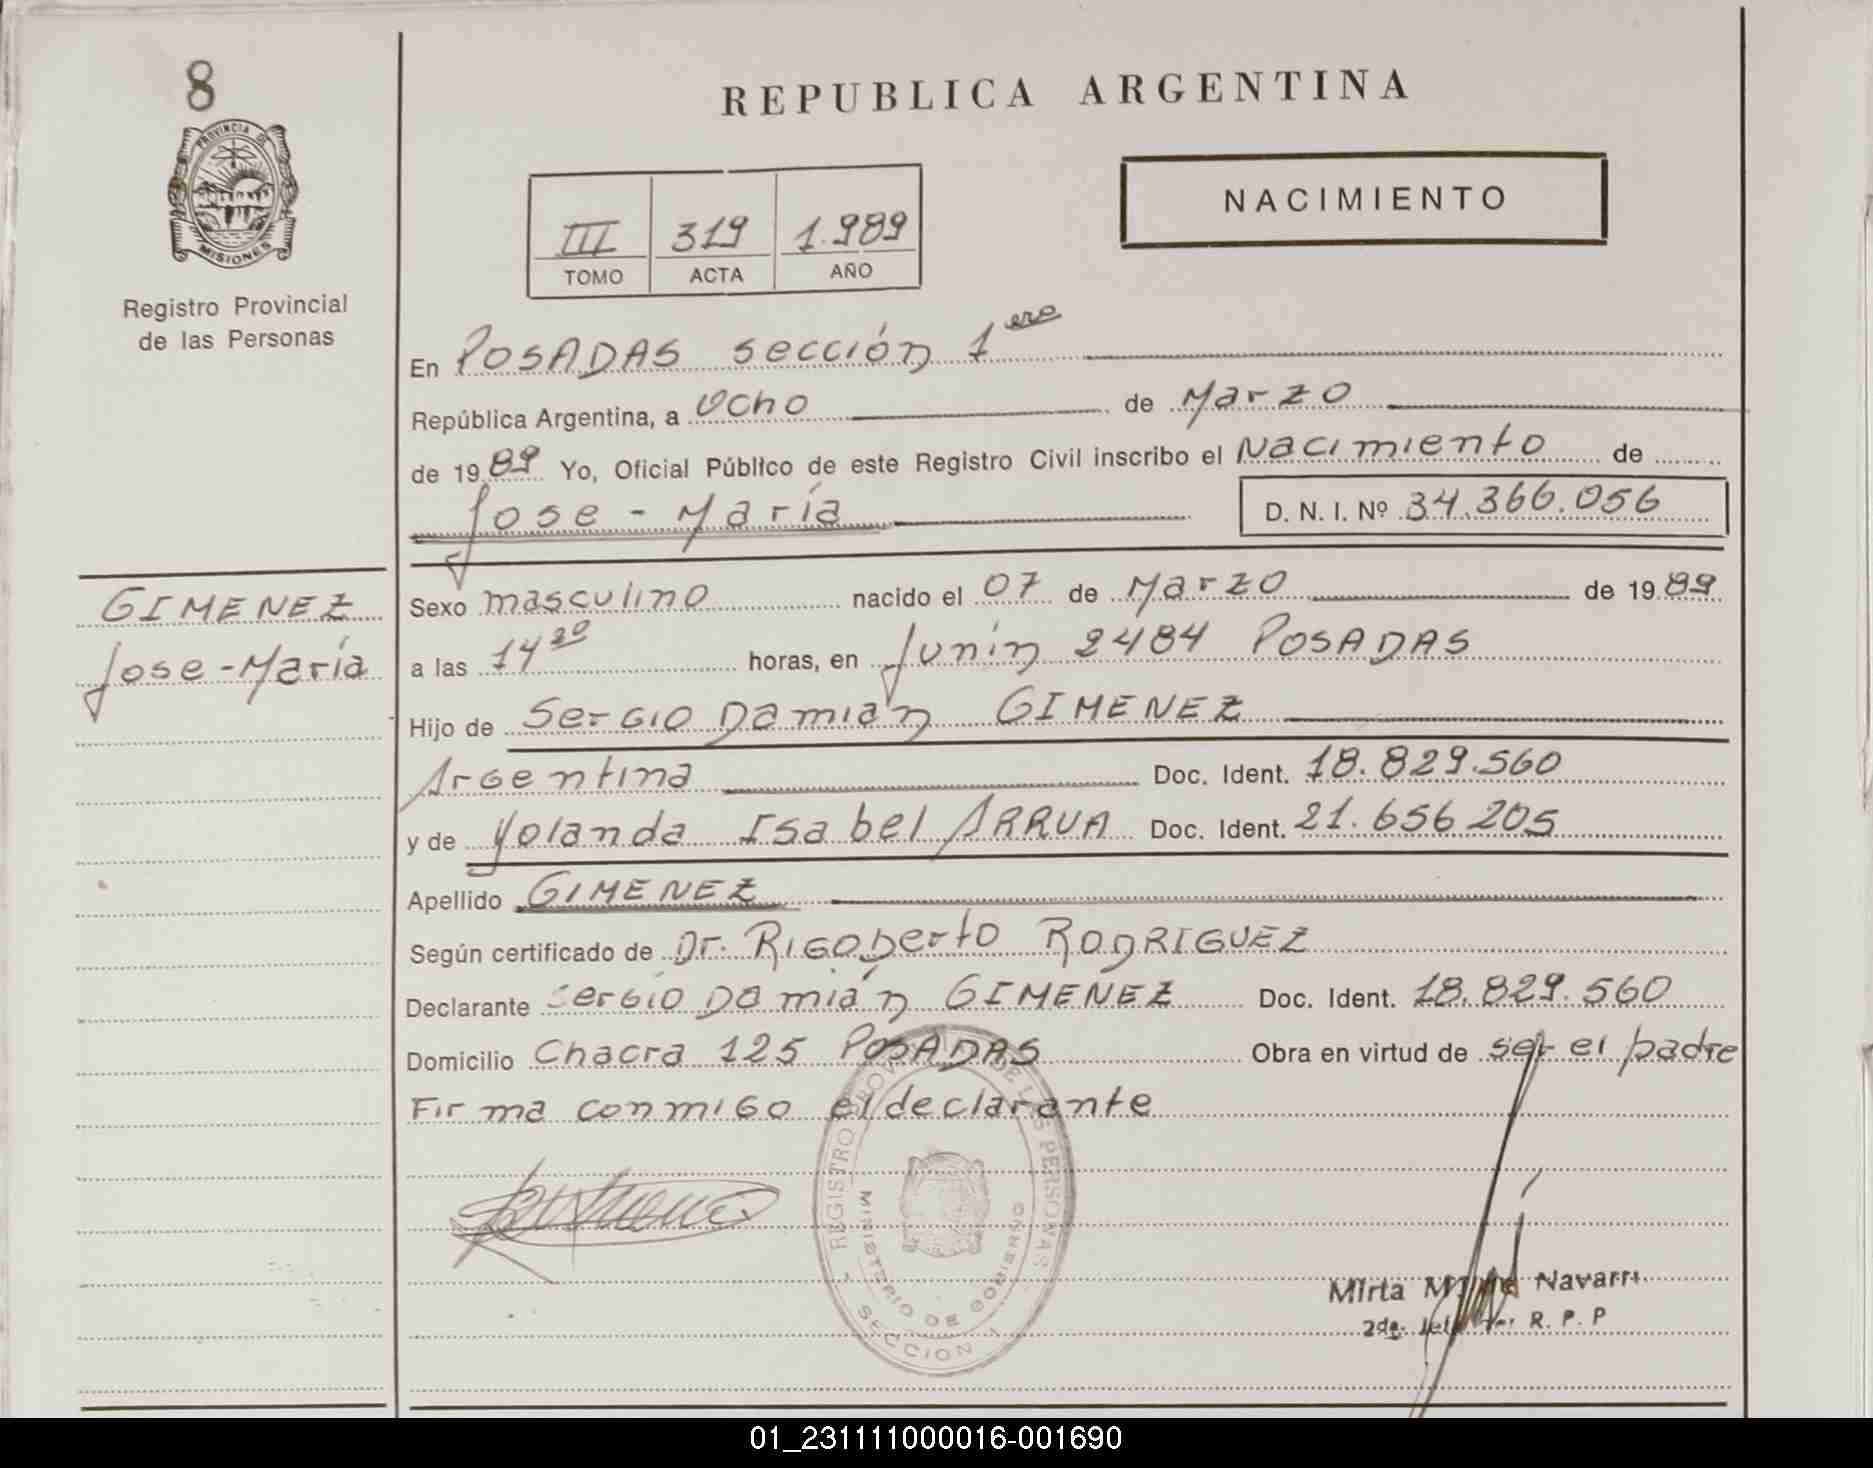 8
PROVINCIA DE
MISIONES
Registro Provincial
de las Personas
GIMENEZ
Jose-María
REPUBLICA ARGENTINA
NACIMIENTO
III 319 1.989
TOMO ACTA AÑO
En POSADAS sección 1era
República Argentina, a Ocho de Marzo
de 1989 Yo, Oficial Público de este Registro Civil inscribo el Nacimiento de
Jose - María D. N. I. Nº 34.366.056
Sexo masculino nacido el 07 de Marzo de 1989
a las 14 30 horas, en Junín 2484 POSADAS
Hijo de Sergio Damián GIMENEZ
Argentina Doc. Ident. 18.829.560
y de Yolanda Isabel ARRUA Doc. Ident. 21.656 205
Apellido GIMENEZ
Según certificado de Dr. RIGOberto RODRIGUEZ
Declarante Sergio Damián GIMENEZ Doc. Ident. 18.829.560
Domicilio Chacra 125 POSADAS Obra en virtud de ser el padre
Firma conmigo el declarante
REGISTRO PROVINCIAL DE LAS PERSONAS
MINISTERIO DE GOBIERNO
SECCION 1
Mirta Navarr
2da. R. P. P
01_231111000016-001690